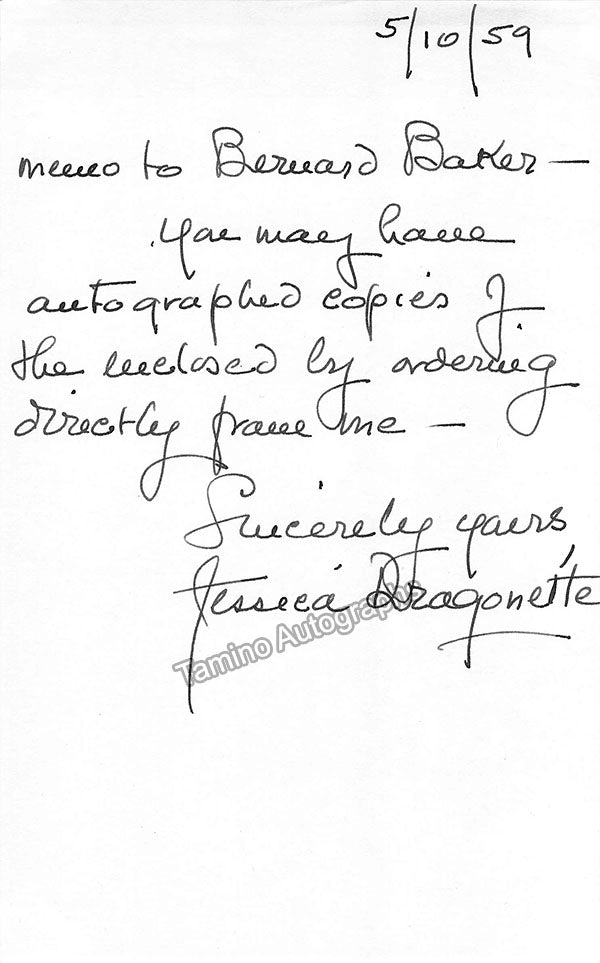 5/10/59
memo to Bernard Baker —
you may have
autographed copies of
the enclosed by ordering
directly from me —
Sincerely yours,
Jessica Dragonette
Tamino Autographs